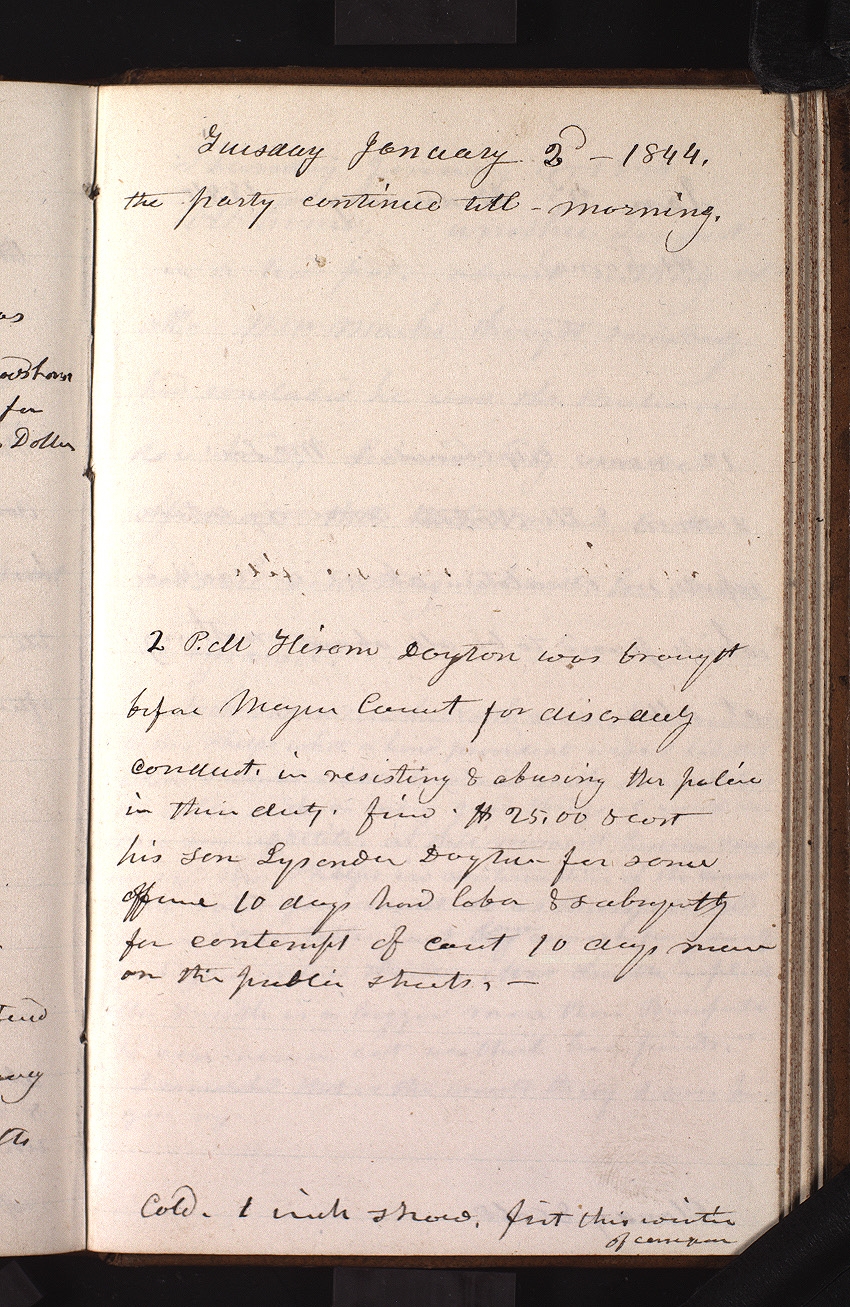 as
for
Dollar
Tuesday January 2d – 1844.
the party continued till – morning.
2 P.M Hiram Dayton was brought
before Mayor Court for disorderly
conduct. in resisting & abusing the police
in their duty. fine. $25,00 & cost
his son Lysander Dayton for same
offence 10 days hard labor & subsequently
for contempt of court 10 days more
on the public streets, –
Cold. 1 inch snow. first this winter
of consequence